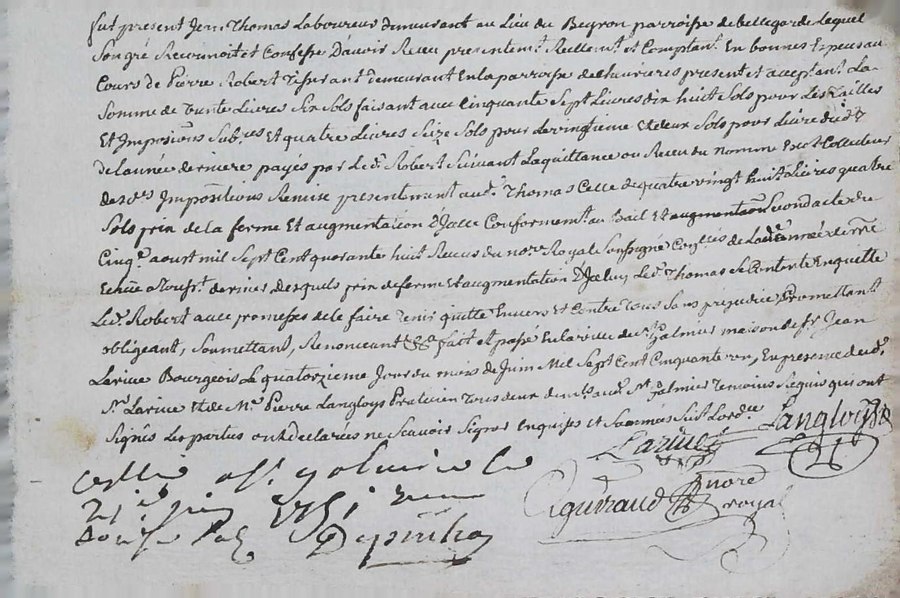 fut present Jean Thomas Laboureur demeurant au Lieu du Beyron parroisse de bellegarde Lequel
Son gré Reconnoit et Confesse D'avoir Receu presentemt. Reellemt. et Comptant. En bonnes Especes au
Cours de Pierre Robert Tisserant demeurant En la parroisse de present et acceptant. La
Somme de trente Livres Six Sols faisant avec Cinquante Sept Livres dix huit Sols pour Les Tailles
Et Impositions Et quatre Livres Seize Sols pour Le vingtieme Et deux Sols pour Livre
de L'année derniere payés par Led. Robert Suivant La quittance ou Receu du nommé Collecteur
desdes. Impositions Remise presentement aud. Thomas Celle de quatre vingt huit Livres quatre
Sols prix de la ferme Et augmentation D'Icelle Conformemt. au Bail Et augmentaôn Second acte du
Cinq. aoust mil Sept Cent quarante huit Receus du nore. Royal Soussigné de L'année
Echüe desquels prix de ferme et augmentation D'Icelux, Led. Thomas Se Contente En quitte
Led. Robert avec promesses de le faire Tenir quitte Envers et Contre Tous Sans prejudice, Promettant.
obligeant, Soumettant, Renonceant &a fait et passé En la ville de St. Galmier maison de Sr. Jean
Larive Bourgeois Le quatorzieme Jour du mois de Juin Mil Sept Cent Cinquante un, En presence dud.
Sr. Larive Et de Me. Pierre Langloys Praticien Tous deux demts. aud. St. Galmier Temoins Sicquis qui ont
Signés Les parties ont declarées ne Scavoir Signer Enquises et Sommées Suivt. Lordce.
Larive Langloys
Cgurraud nore
royal
a St. galmier le
juin 1751